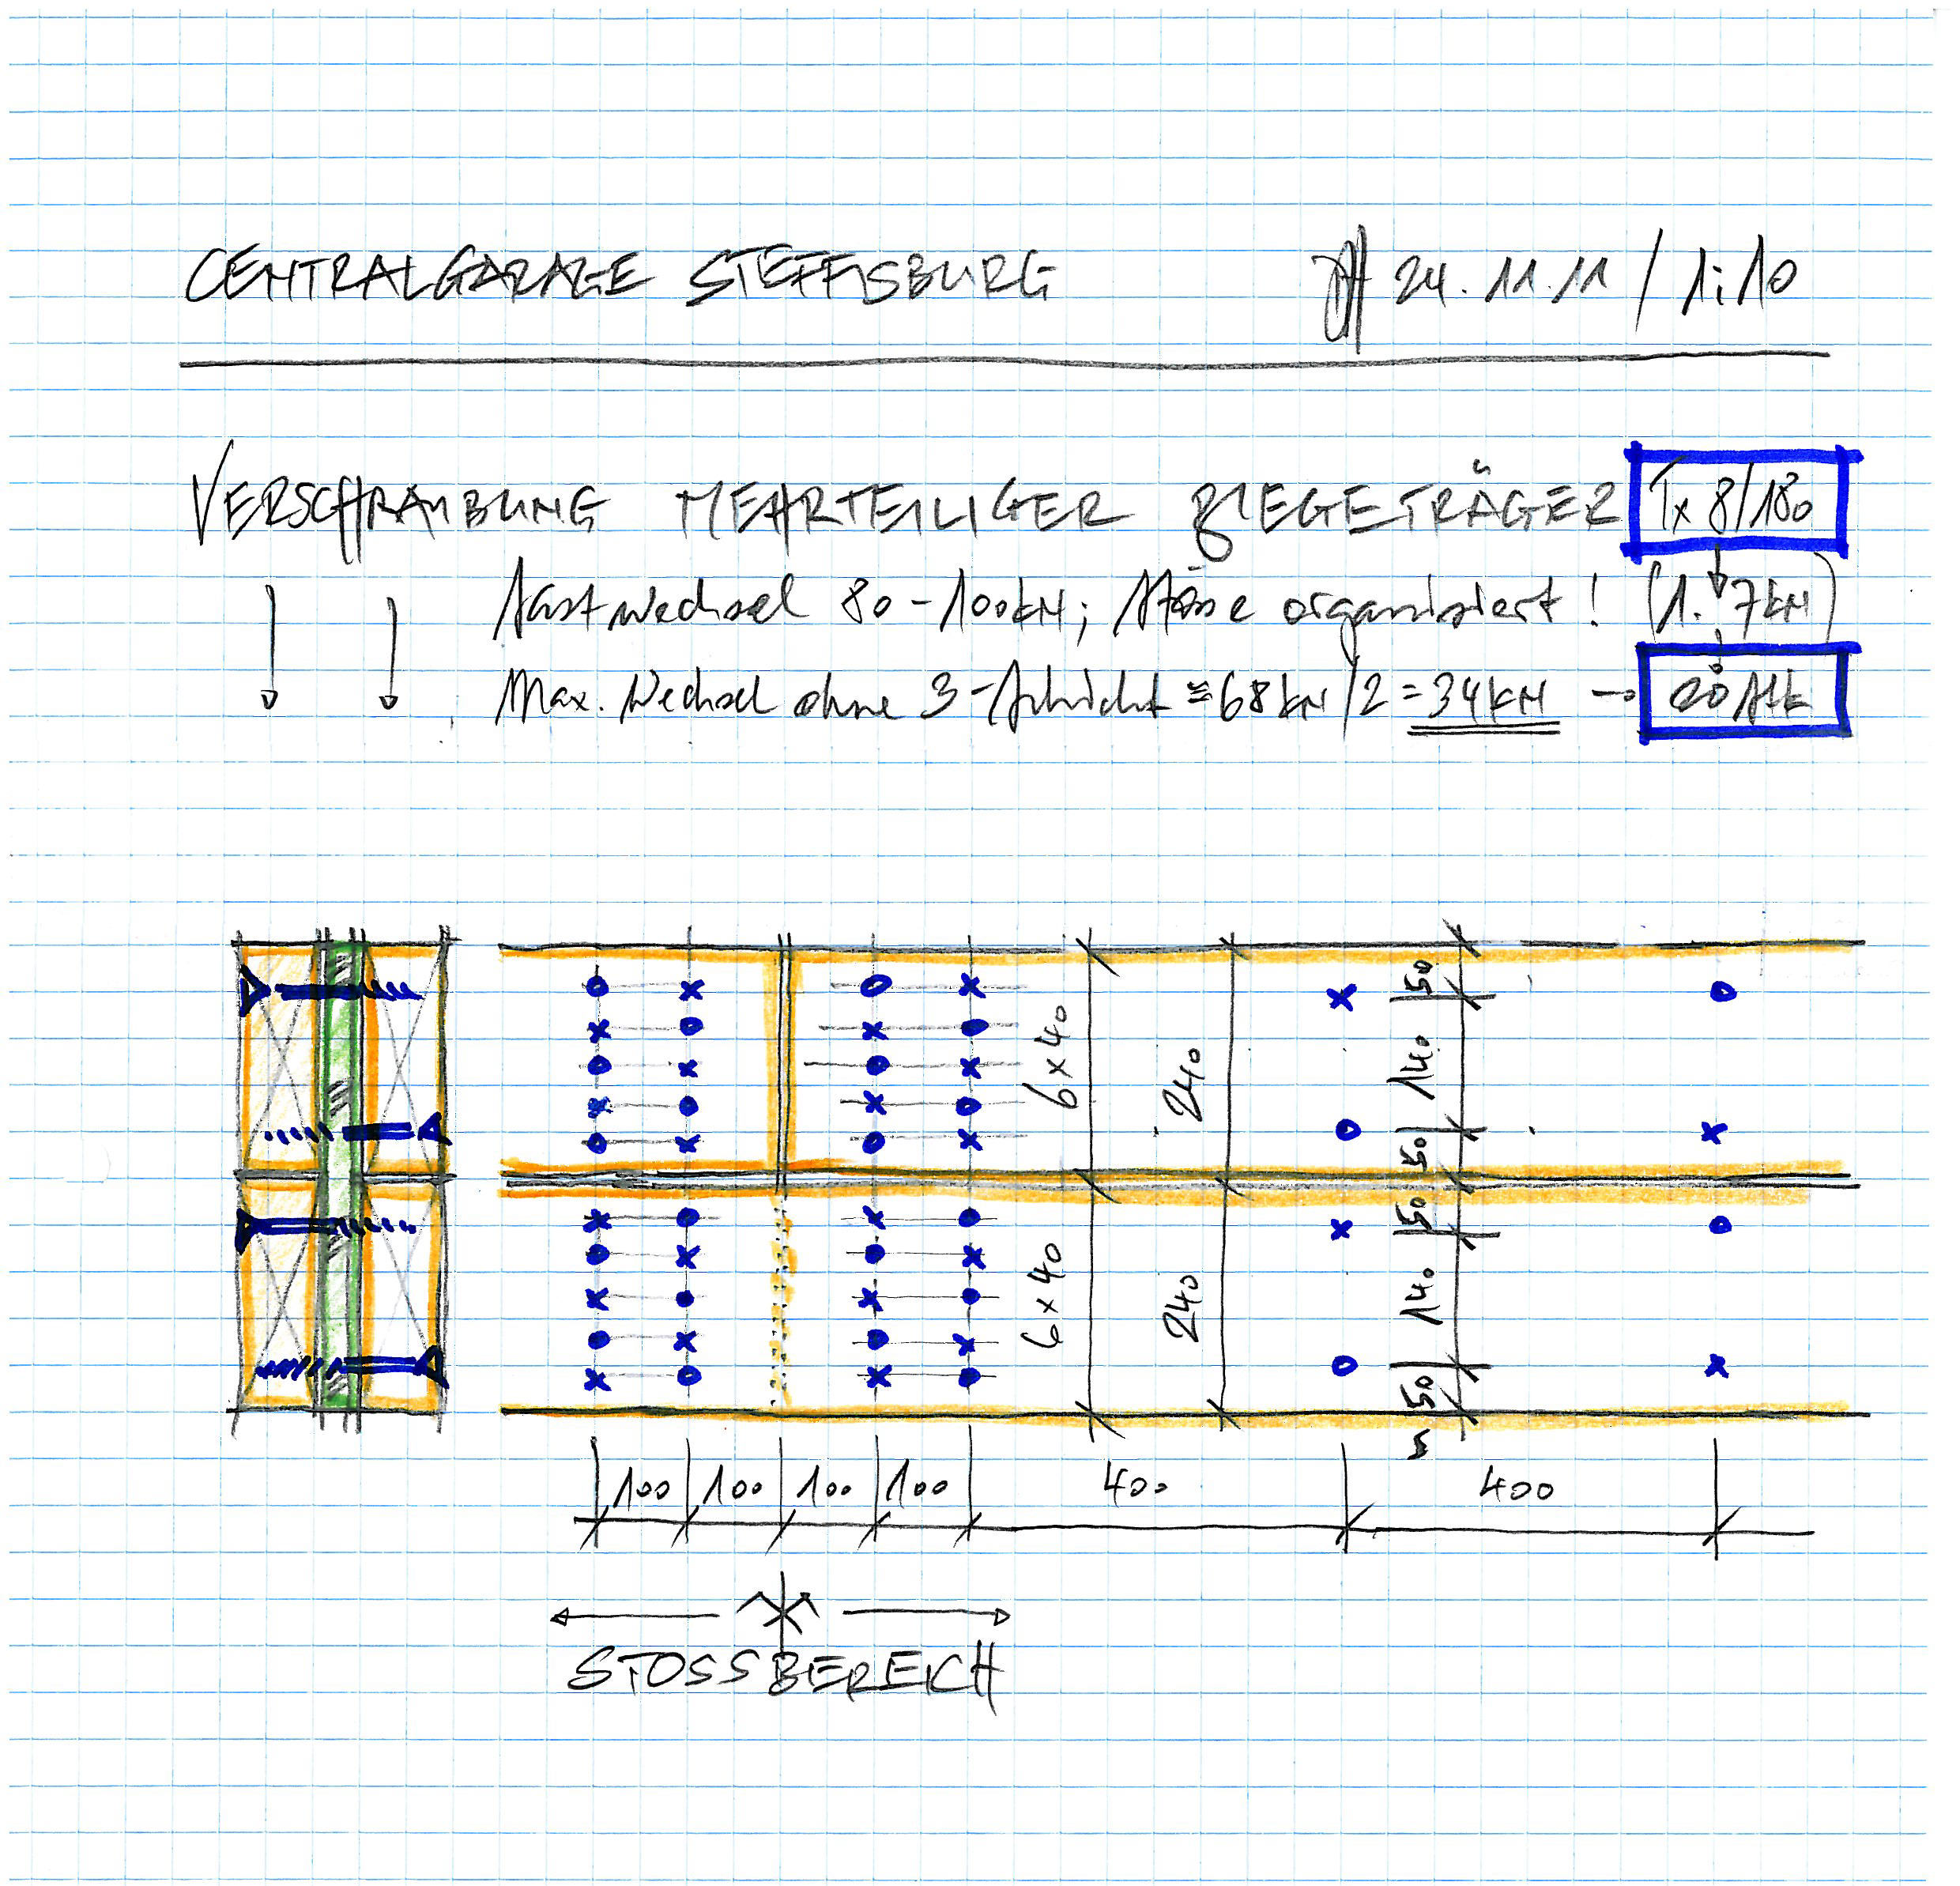 CENTRALGARAGE STEFFISBURG 24.11.11 / 1:10
VERSCHRAUBUNG MEHRTEILIGER BIEGETRÄGER Tx 8/180
Lastwechsel 80-100kN; Stösse organisiert! (1.7kN)
Max. Wechsel ohne 3-Schicht ≅ 68kN/2 = 34kN → 20 Stk
6 x 40
240
50
140
50
6 x 40
240
50
140
50
100 100 100 100 400 400
STOSSBEREICH